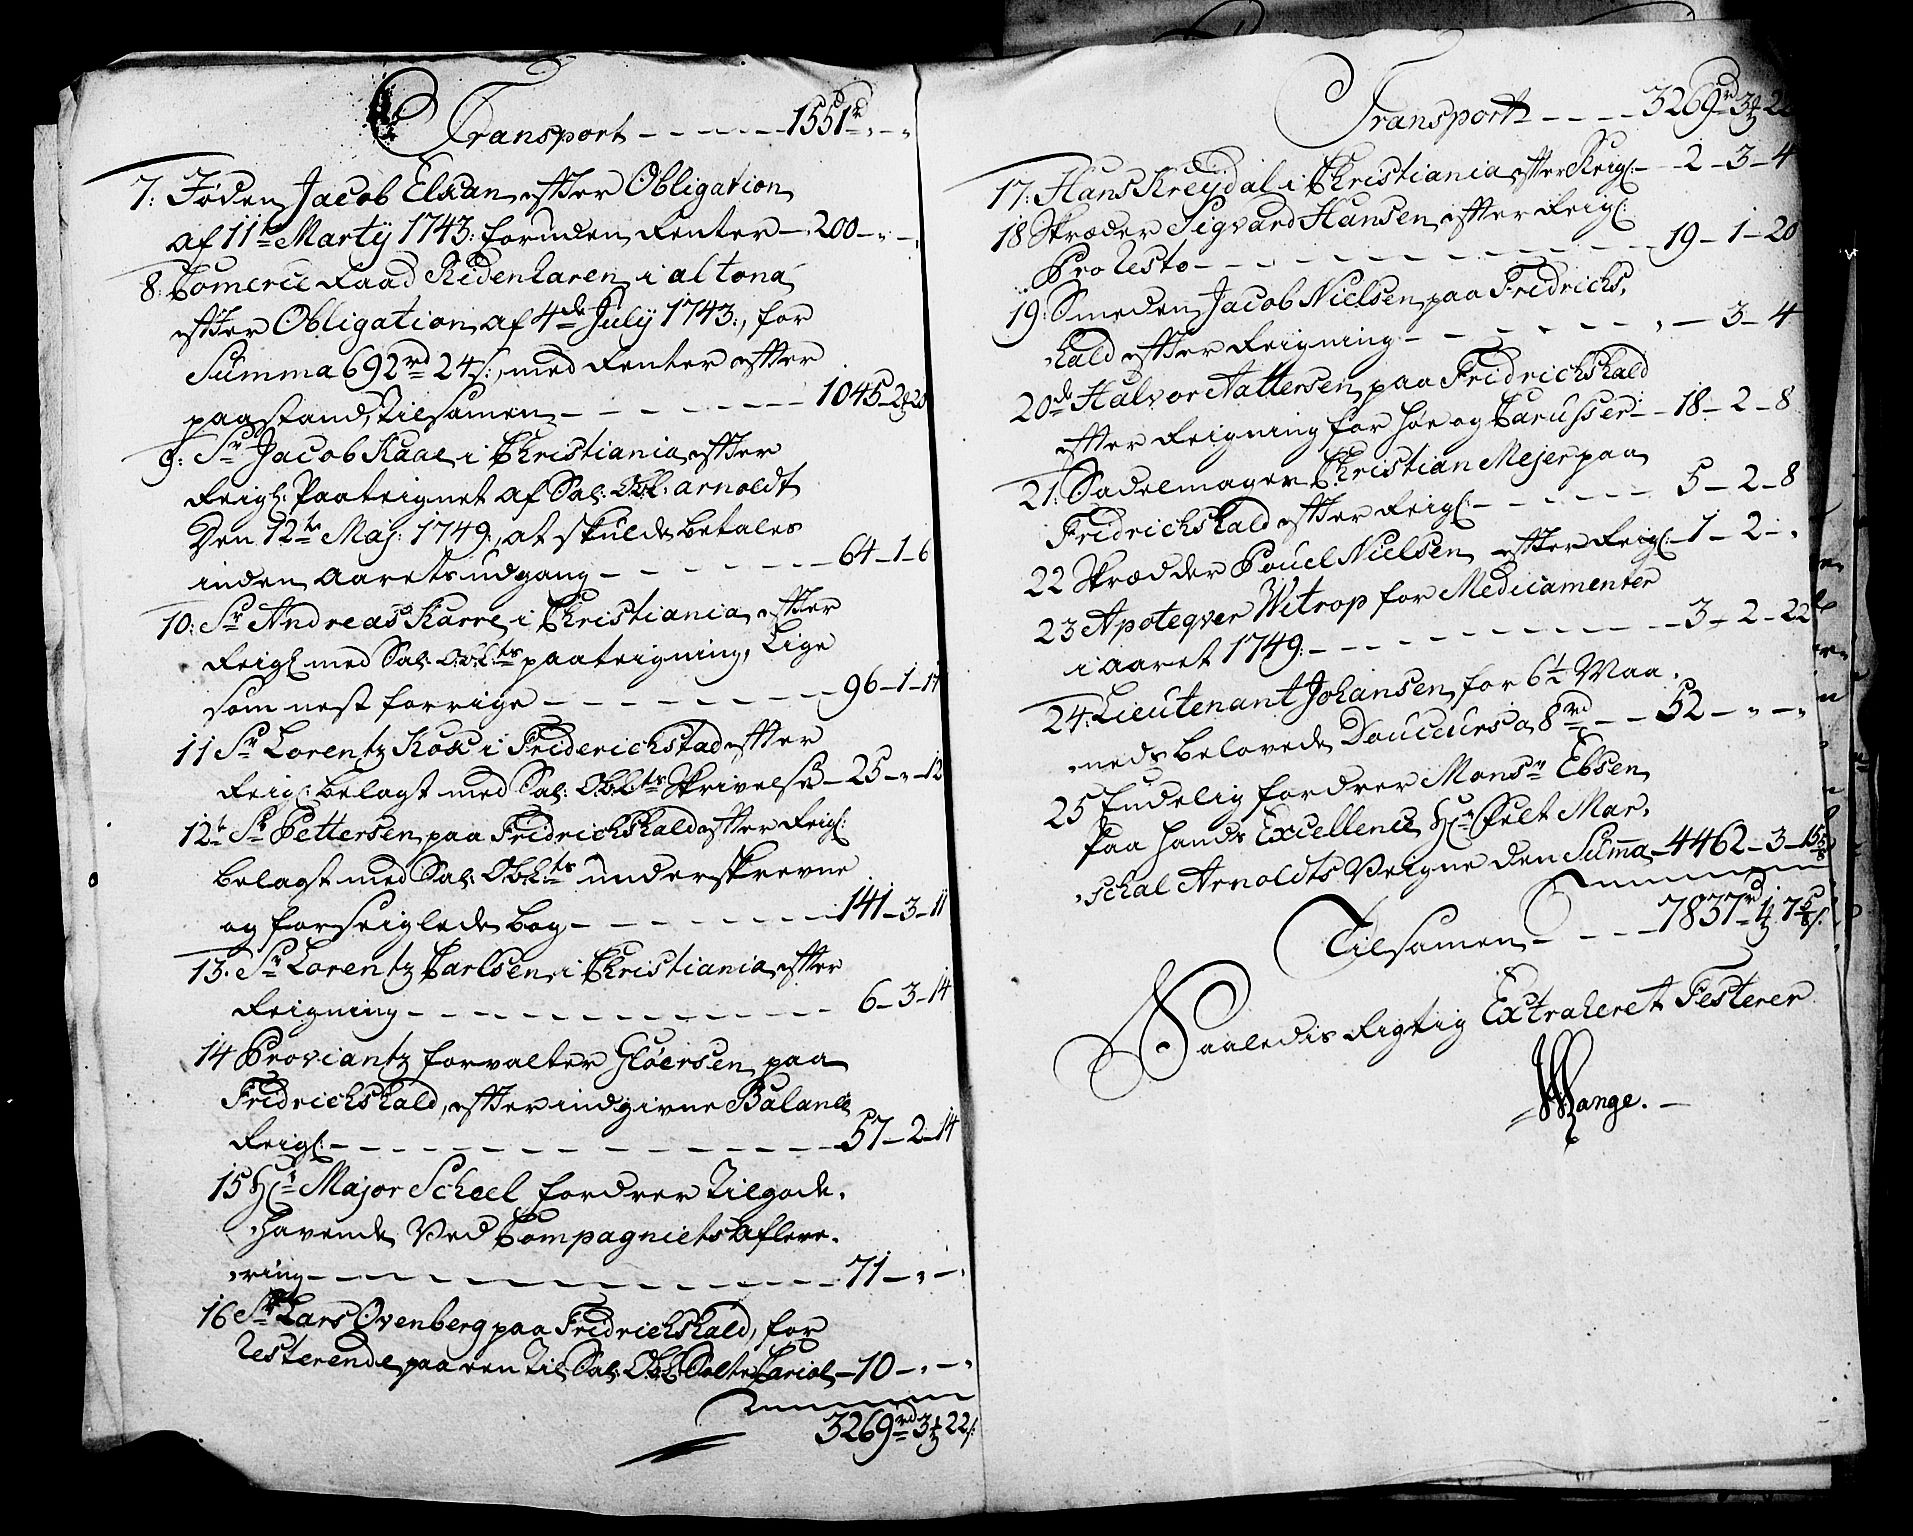 Transport - - - - - 1551rd „ - „
7: Jøden Jacob Elkan efter Obligation
af 11te Martÿ 1743: foruden Renter - 200 - „ - „
8: Comerce Raad Ridenharen i altona
efter Obligation af 4de Julÿ 1743:, for
Summa 692rd 24s:, med Renter efter
paastand, tilsamen - - - - - - 1045 - 2 - 20
9: Sr Jacob Kaae i Christiania efter
Reigl: Paateignet af Sal: Obl: arnoldt
Den 12te Maj: 1749:, at skulde betales
inden Aarets udgang - - - - - 64 - 1 - 6
10: Sr Andreas Karre i Christiania efter
Reigl med Sal: Obl:ts paateigning, Lige
som nest forrige - - - - - - 96 - 1 - 17
11 Sr Lorentz Kox i Friderichstad efter
Reigl: belagt med Sal: Obl:ts Skrivelse - 25 - „ - 12
12te Sr Pettersen paa Fridrichshald efter Reigl:
belagt med Sal: Obl:ts underskrevne
og forseiglede bog - - - - - - 141 - 3 - 11
13. Sr Lorentz Carlsen i Christiania efter
Reigning - - - - - - - - 6 - 3 - 14
14 Proviantz forvalter Gløersen paa
Fridrichshald, efter indgivne Balance
Reigl: - - - - - - - - - 57 - 2 - 14
15 Hr Major Scheel fordrer Tilgode.
„havende Ved Compagniets Aflere.
„ring - - - - - - - - - 71 - „ - „
16 Sr Lars Ovenberg paa Fridrichshald, for
Resterende paa en til Sal: Obl: Solte Cariol - 10 - „ - „
3269rd 3 22s:
Transport - - - - 3269rd 3 22
17: Hans Kreÿdal i Christiania efter Reigl: - 2 - 3 - 4
18 Skræder Sigvard Hansen efter Reigl:
Pro Resto - - - - - - - - 19 - 1 - 20
19: Smeden Jacob Nielsen paa Fridrichs.
„hald efter Reigning - - - - - „ - 3 - 4
20de Halvor Aattersen paa Fridrichshald
efter Reigning for høe og Carusser - - 18 - 2 - 8
21: Sadelmager Christian Mejer paa
Fridrichshald efter Reigl: - - - - - 5 - 2 - 8
22 Skrædder Pouel Nielsen efter Reigl: - 1 - 2 - „
23 Apoteqver Witrop for Medicamenter
i aaret 1749: - - - - - - - 3 - 2 - 22
24: Lieutenant Johansen for 6½ Maa.
„neds belovede Douceurs a 8rd - - 52 - „ - „
25 Endelig fordrer Monsr Ebsen
Paa hands Excellence Hr Felt Mar.
„schal Arnoldts Veigne den Summa - 4462 - 3 - 15⅝
Tilsamen - - - - 7837rd 1 7⅝s:
Saaledis Rigtig Extraheret Testerer
Lange. -